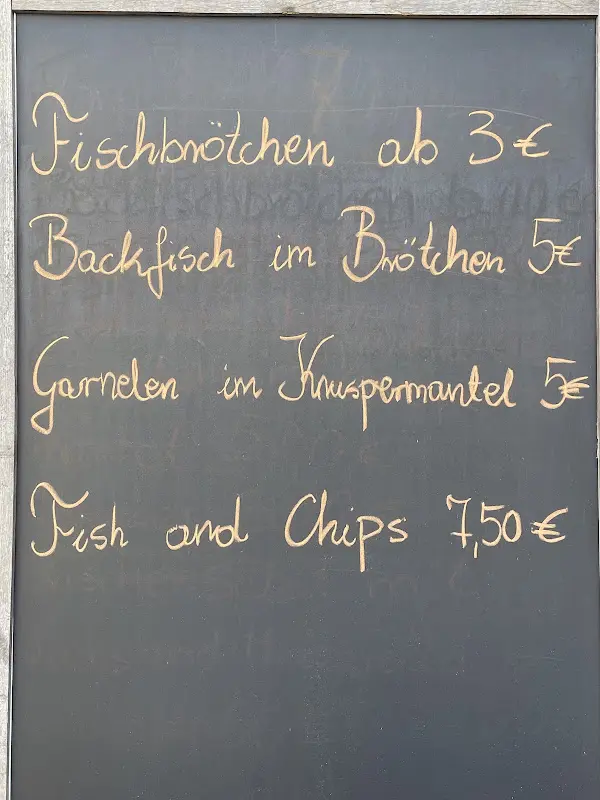 Fischbrötchen ab 3€
Backfisch im Brötchen 5€
Garnelen im Knuspermantel 5€
Fish and Chips 7,50€